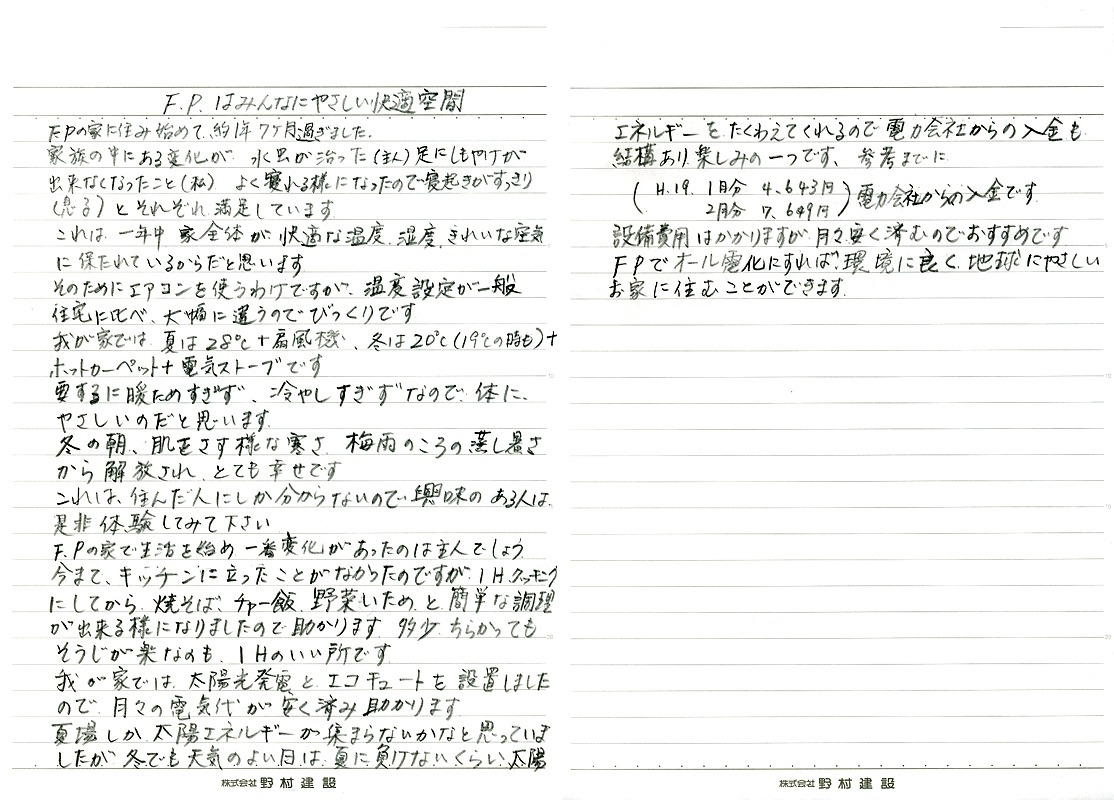 F.P. はみんなにやさしい快適空間
F.Pの家に住み始めて、約1年7ヶ月過ぎました。
家族の中にある変化が 水虫が治った(主人)足にしもやけが
出来なくなったこと(私) よく寝れる様になったので寝起きがすっきり
(息子)とそれぞれ満足しています
これは 一年中 家全体が 快適な温度、湿度、きれいな空気
に保たれているからだと思います
そのためにエアコンを使うわけですが、温度設定が一般
住宅に比べ、大幅に違うのでびっくりです
我が家では、夏は28℃+扇風機、冬は20℃(19℃の時も)+
ホットカーペット+電気ストーブです
要するに暖ためすぎず、冷やしすぎずなので、体に、
やさしいのだと思います。
冬の朝、肌をさす様な寒さ 梅雨のころの蒸し暑さ
から解放され、とても幸せです
これは、住んだ人にしか分からないので興味のある人は、
是非体験してみて下さい
F.Pの家で生活を始め一番変化があったのは主人でしょう
今まで、キッチンに立ったことがなかったのですが、IHクッキング
にしてから、焼そば、チャー飯、野菜いため、と簡単な調理
が出来る様になりましたので助かります 多少ちらかっても
そうじが楽なのも、IHのいい所です
我が家では、太陽光発電と、エコキュートを設置しました
ので、月々の電気代が安く済み助かります
夏場しか太陽エネルギーが集まらないかなと思っていま
したが、冬でも天気のよい日は、夏に負けないくらい、太陽
株式会社 野村建設
エネルギーをたくわえてくれるので電力会社からの入金も
結構あり楽しみの一つです、参考までに
(H.19. 1月分 4,643円
2月分 7,649円)電力会社からの入金です
設備費用はかかりますが月々安く済むのでおすすめです
FPでオール電化にすれば、環境に良く、地球にやさしい
お家に住むことができます。
株式会社 野村建設